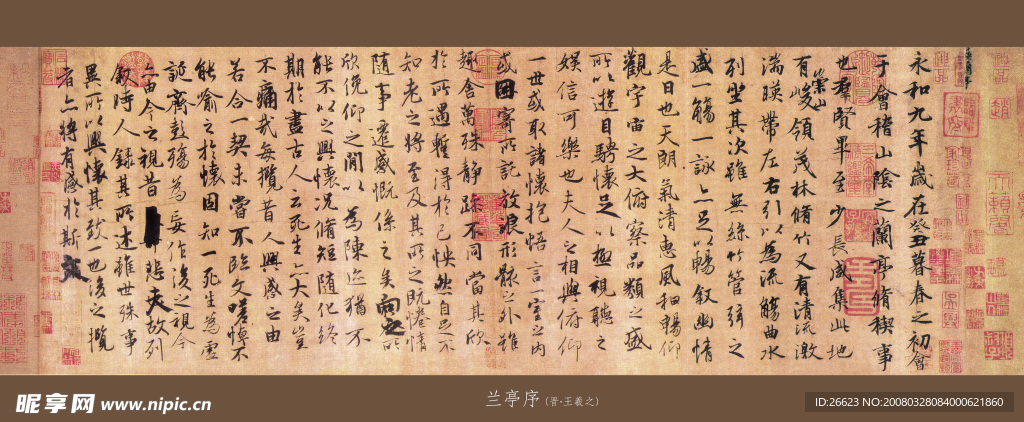 永和九年歲在癸丑暮春之初會
于會稽山陰之蘭亭脩稧事
也羣賢畢至少長咸集此地
有崇山峻領茂林脩竹又有清流激
湍暎帶左右引以為流觴曲水
列坐其次雖無絲竹管弦之
盛一觴一詠亦足以暢叙幽情
是日也天朗氣清惠風和暢仰
觀宇宙之大俯察品類之盛
所以遊目騁懷足以極視聽之
娛信可樂也夫人之相與俯仰
一世或取諸懷抱悟言一室之內
或因寄所託放浪形骸之外雖
趣舍萬殊靜躁不同當其欣
於所遇暫得於己怏然自足不
知老之將至及其所之既惓情
隨事遷感慨係之矣向之所
欣俛仰之間以為陳迹猶不
能不以之興懷況脩短隨化終
期於盡古人云死生亦大矣豈
不痛哉每攬昔人興感之由
若合一契未嘗不臨文嗟悼不
能喻之於懷固知一死生為虛
誕齊彭殤為妄作後之視今
亦由今之視昔悲夫故列
叙時人錄其所述雖世殊事
異所以興懷其致一也後之攬
者亦將有感於斯文
兰亭序(晋·王羲之)
昵享网 www.nipic.cn
ID:26623 NO:20080328084000621860